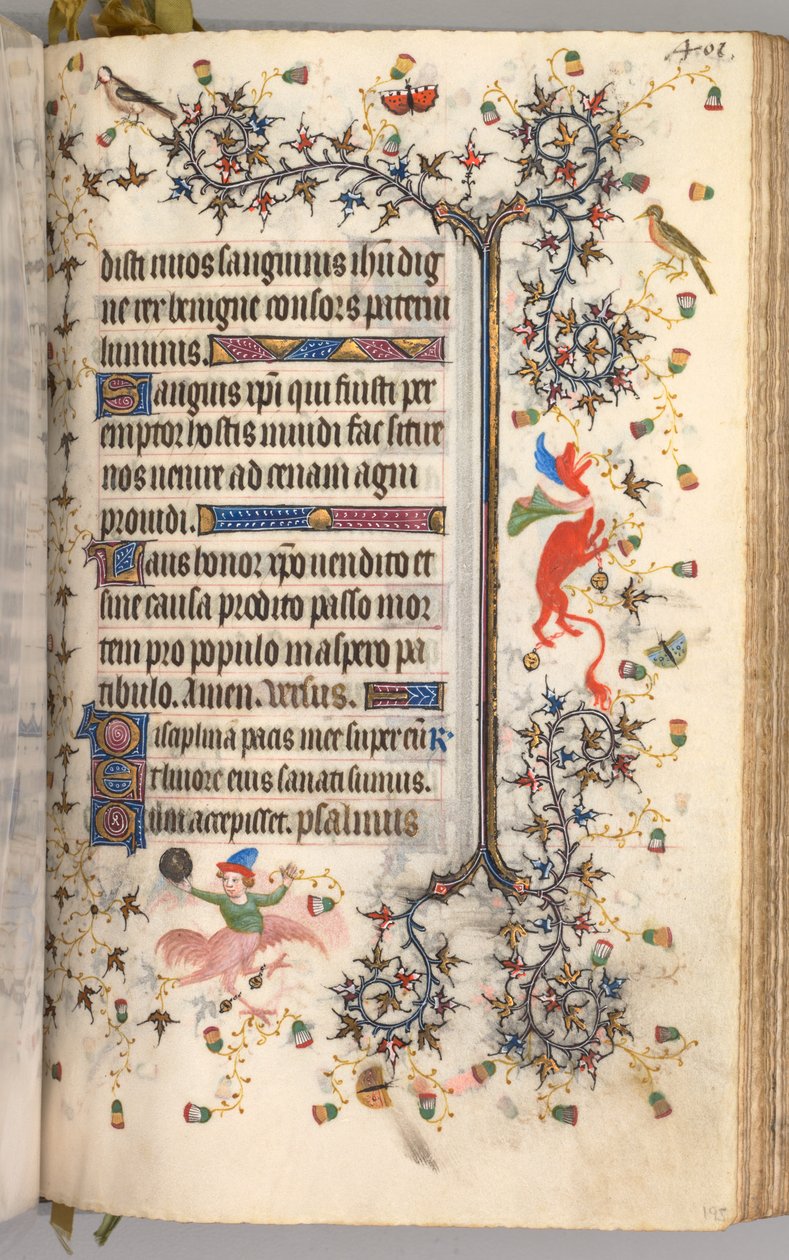 402.
disti niuos sanguinis ihu dig
ne rex benigne consors paterni
luminis.
Sanguis xpi qui fuisti per
emptor hostis mundi fac sitire
nos uenire ad cenam agni
prouidi.
Laus honor xpo uendito et
sine causa prodito passo mor
tem pro populo in aspero pa
tibulo. Amen. Versus.
Disciplina pacis nre super eu R
Et liuore eius sanati sumus.
Cum accepisset. psalmus
195